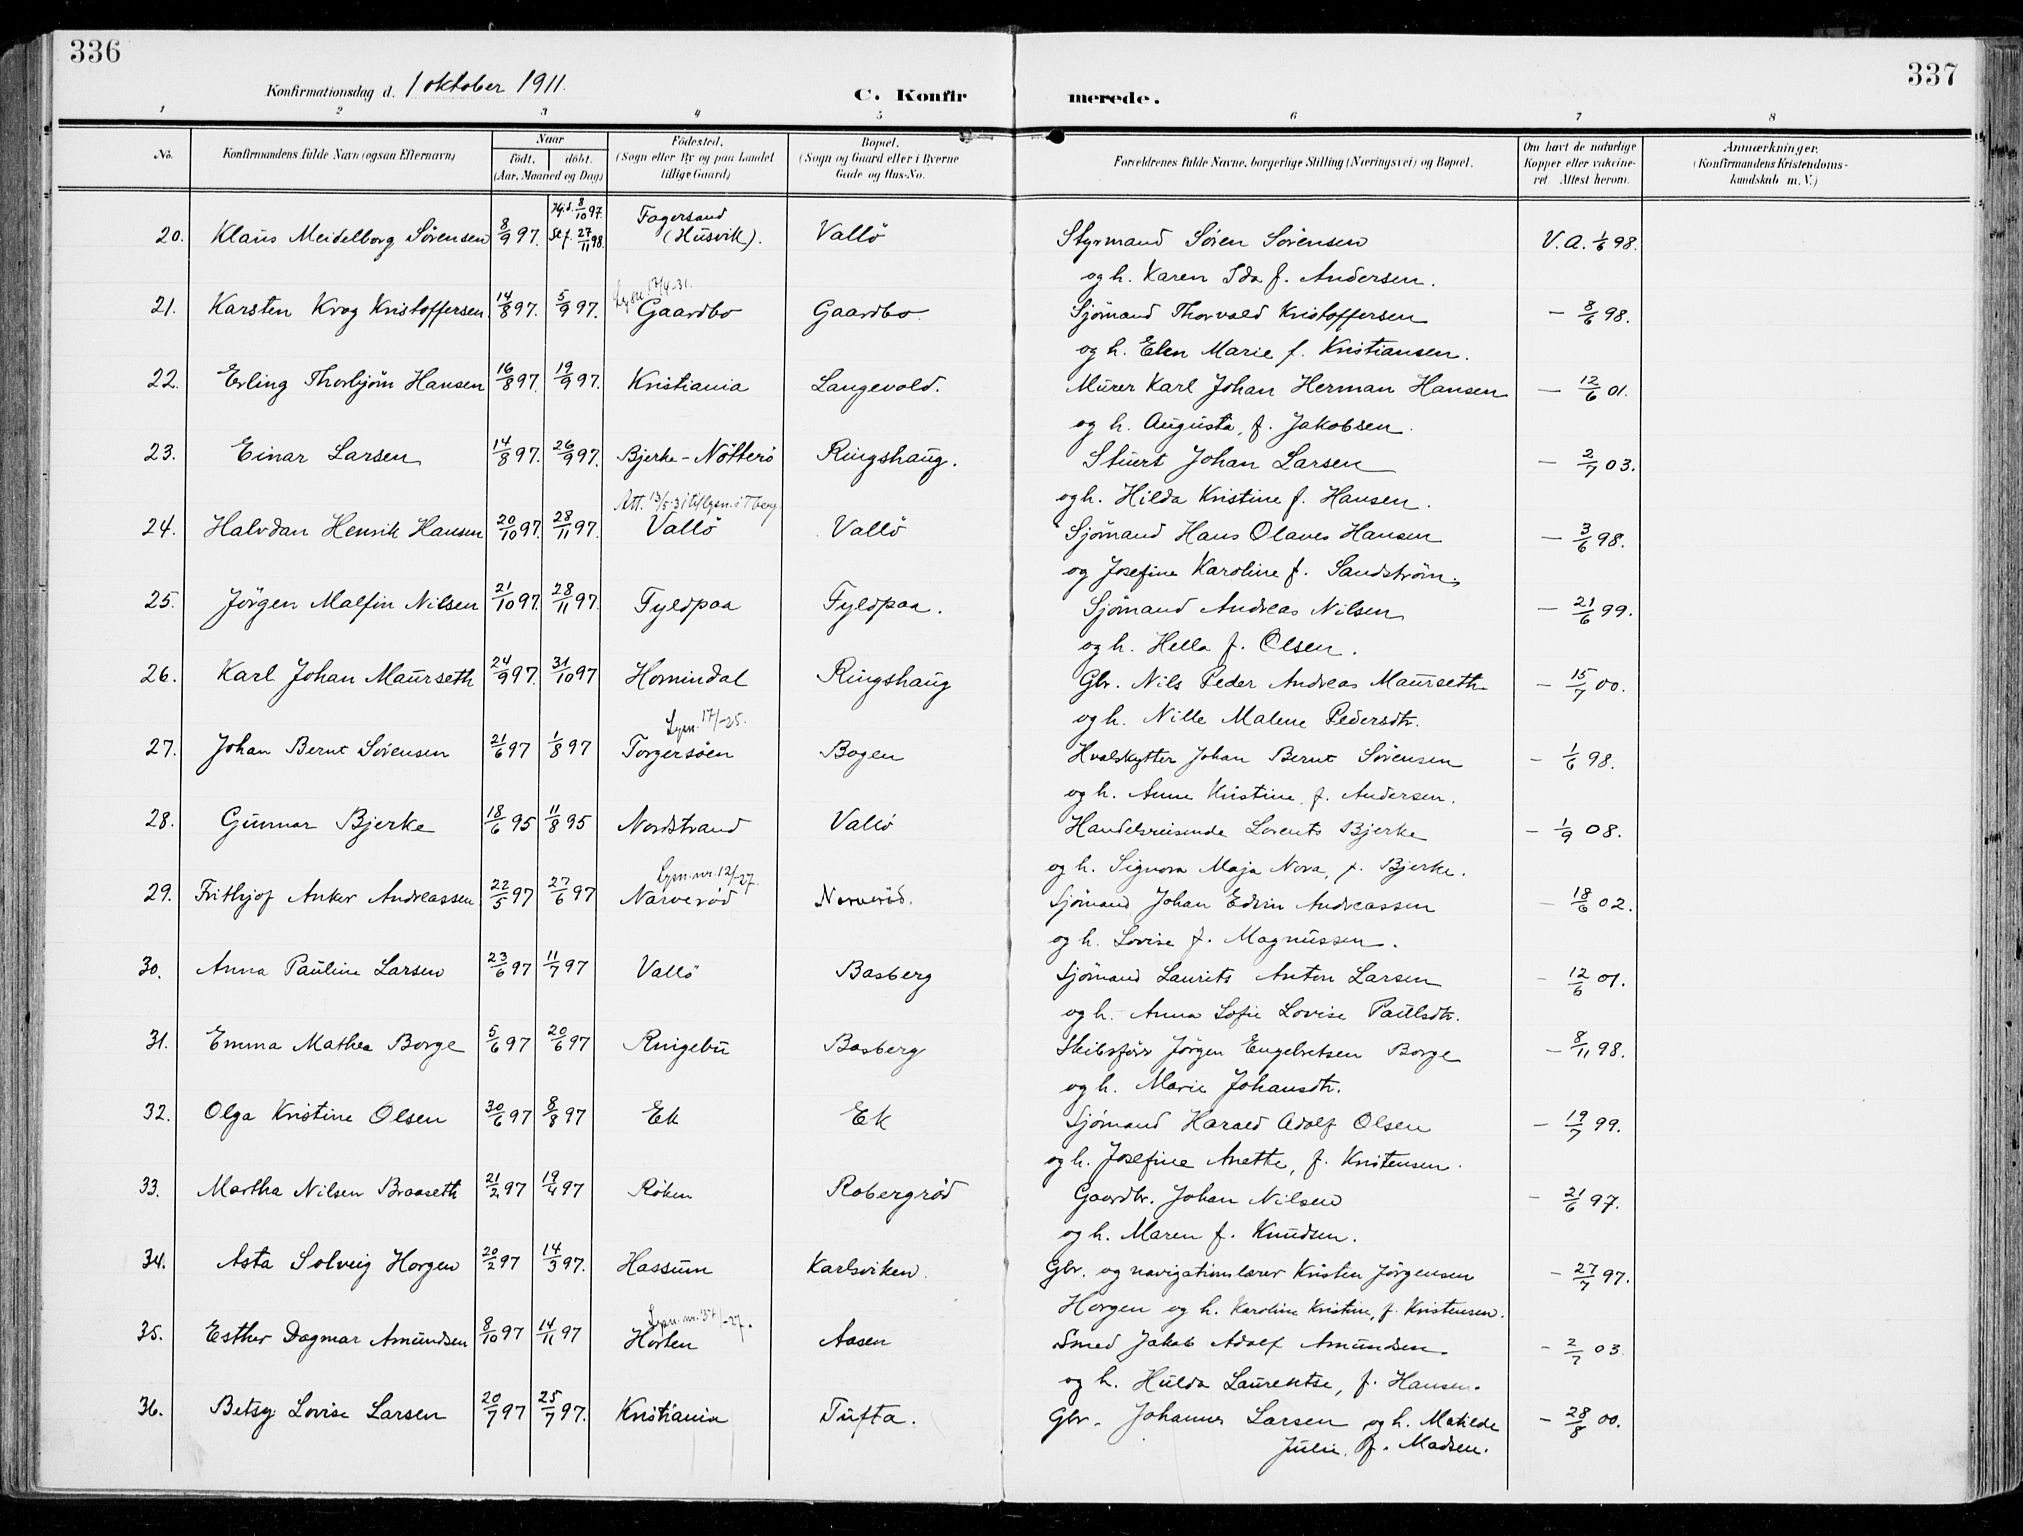 336
337
Konfirmationsdag d. 1 oktober 1911.
C. Konfirmerede.
1 2 3 4 5 6 7 8
No. Konfirmandens fulde Navn (ogsaa Efternavn) Naar født. døbt. (Aar, Maaned og Dag) Fødested. (Sogn eller By og paa Landet tillige Gaard) Bopæl. (Sogn og Gaard eller i Byerne Gade og Hus-No. Forældrenes fulde Navne, borgerlige Stilling (Næringsvei) og Bopæl. Om havt de naturlige Kopper eller vakcineret. Attest herom. Anmærkninger. (Konfirmandens Kristendomskundskab m. V.)
20. Klaus Meidelborg Sørensen 8/9 97. Hj.d. 8/10 97. St.f. 27/11 98. Fagersand (Husvik). Vallö Styrmand Sören Sörensen V. A. 1/6 98.
og h. Karen Ida f. Andersen.
21. Karsten Krog Kristoffersen 14/8 97. 5/9 97. Lysn. 17/4-31. Gaardbo Gaardbo Sjømand Thorvald Kristoffersen – 8/6 98.
og h. Elen Marie f. Kristiansen.
22. Erling Thorbjörn Hansen 16/8 97. 19/9 97. Kristiania Langevold. Murer Karl Johan Herman Hansen – 12/6 01.
og h. Augusta, f. Jakobsen.
23. Einar Larsen 14/8 97. 26/9 97. Bjerke-Nötterö Ringshaug. Stuert Johan Larsen – 2/7 03.
og h. Hilda Kristine f. Hansen.
24. Halvdan Henrik Hansen 20/10 97. 28/11 97. Att. 13/5-31 til lysn. i Tberg Vallö Vallö Sjömand Hans Olaves Hansen – 3/6 98.
og Josefine Karoline f. Sandström.
25. Jörgen Malfin Nilsen 21/10 97. 28/11 97. Fyldpaa Fyldpaa. Sjömand Andreas Nilsen – 21/6 99.
og h. Hella f. Olsen.
26. Karl Johan Maurseth 24/9 97. 31/10 97 Hornindal Ringshaug Gbr. Nils Peder Andreas Maurseth – 15/7 00.
og h. Nille Malene Pedersdtr.
27. Johan Bernt Sörensen 21/6 97 1/8 97 Lysn. 17/-25. Torgersöen Bogen Hvalskytter Johan Bernt Sörensen – 1/6 98.
og h. Anne Kristine f. Andersen.
28. Gunnar Bjerke 18/6 95 11/8 95 Nordstrand Vallö Handelsreisende Lorents Bjerke – 1/9 08.
og h. Signora Maja Nora, f. Bjerke.
29. Frithjof Anker Andreassen 22/5 97 27/6 97 Lysn. nr. 12/-27. Narveröd Narveröd. Sjömand Johan Edvin Andreassen – 18/6 02.
og h. Lovise f. Magnussen.
30. Anna Pauline Larsen 23/6 97 11/7 97 Vallö Basberg Sjömand Laurits Anton Larsen – 12/6 01.
og h. Anna Sofie Lovise Paulsdtr.
31. Emma Mathea Borge 5/6 97 20/6 97 Ringebu Basberg Skibsförer Jörgen Engebretsen Borge – 8/11 98.
og h. Marie Johansdtr.
32. Olga Kristine Olsen 30/6 97 8/8 97 Ek Ek Sjömand Harald Adolf Olsen – 19/7 99.
og h. Josefine Anette, f. Kristensen.
33. Martha Nilsen Braaseth 21/2 97 19/4 97 Röken Robergröd Gaardbr. Johan Nilsen – 21/6 97.
og h. Maren f. Knudsen.
34. Asta Solveig Horgen 20/2 97 14/3 97. Hassum Karlsviken. Gbr. og navigationslærer Kristen Jörgensen – 27/7 97.
Horgen og h. Karoline Kristine, f. Kristensen.
35. Esther Dagmar Amundsen 8/10 97 14/11 97 Lysn. nr. 37/-27. Horten Aasen Smed Jakob Adolf Amundsen. – 2/7 03
og h. Hulda Laurentse, f. Hansen.
36. Betsy Lovise Larsen 20/7 97 25/7 97. Kristiania Tufta. Gbr. Johannes Larsen og h. Matilde – 28/8 00.
Julie f. Madsen.